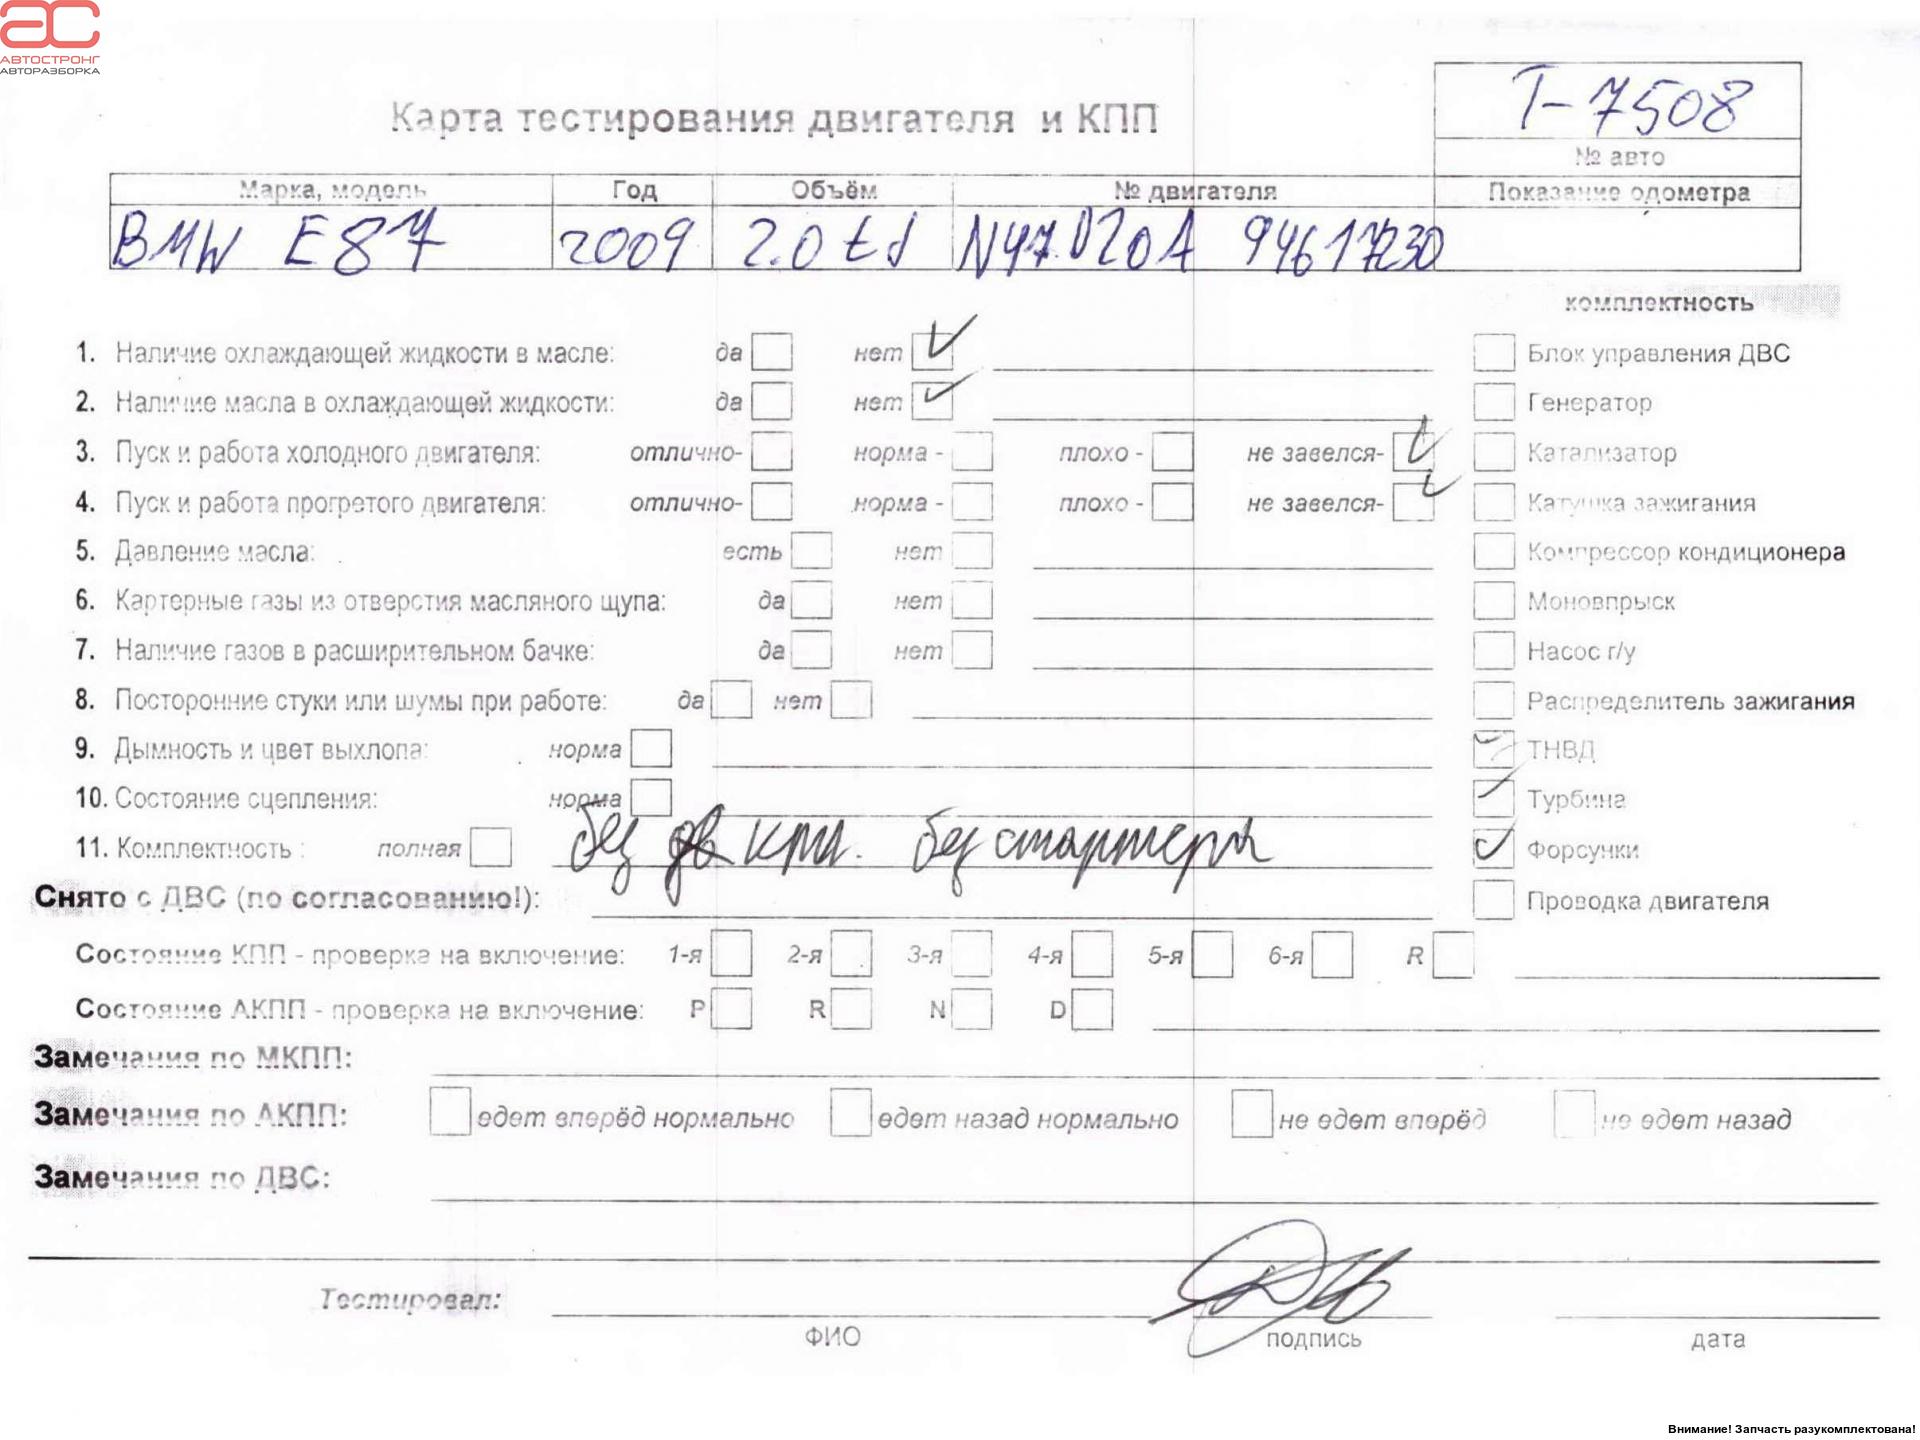 АС
АВТОСТРОНГ
АВТОРАЗБОРКА
Т-7508
Карта тестирования двигателя и КПП
№ авто
Марка, модель Год Объём № двигателя Показание одометра
BMW E87 2009 2.0 td N47D20A 94617230
комплектность
1. Наличие охлаждающей жидкости в масле: да нет Блок управления ДВС
2. Наличие масла в охлаждающей жидкости: да нет Генератор
3. Пуск и работа холодного двигателя: отлично- норма - плохо - не завелся- Катализатор
4. Пуск и работа прогретого двигателя: отлично- норма - плохо - не завелся- Катушка зажигания
5. Давление масла: есть нет Компрессор кондиционера
6. Картерные газы из отверстия масляного щупа: да нет Моновпрыск
7. Наличие газов в расширительном бачке: да нет Насос г/у
8. Посторонние стуки или шумы при работе: да нет Распределитель зажигания
9. Дымность и цвет выхлопа: норма ТНВД
10. Состояние сцепления: норма Турбина
11. Комплектность : полная без кпп. без стартера Форсунки
Снято с ДВС (по согласованию!): Проводка двигателя
Состояние КПП - проверка на включение: 1-я 2-я 3-я 4-я 5-я 6-я R
Состояние АКПП - проверка на включение: P R N D
Замечания по МКПП:
Замечания по АКПП: едет вперёд нормально едет назад нормально не едет вперёд не едет назад
Замечания по ДВС:
Тестировал:
ФИО подпись дата
Внимание! Запчасть разукомплектована!